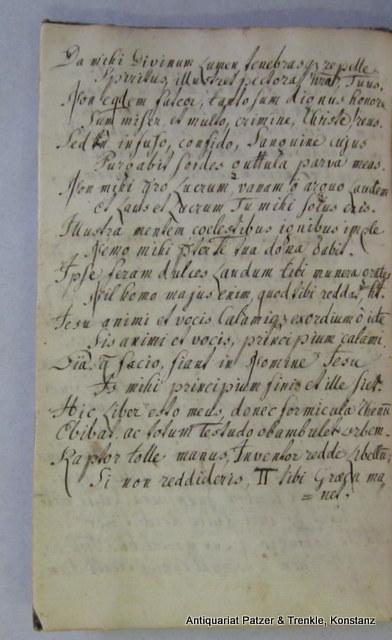 Da mihi Divinum Lumen, tenebrasq3 repelle
Spiritus, illustret pectora Tuus.
Non eqdem fateor, tanto sum dignus honore
Sum miser, et multo, crimine, Christe reus.
Sed in infuso, confido, Sanguine cujus
Purgabit sordes guttula parva meas.
Non mihi pro Lucrum vanam arquo Laudem
Et Laus et Lucrum Tu mihi solus eris.
Illustra mentem coelestibus ignibus imple
Nemo mihi te tua dona dabit.
Ipse feram dulces Laudum tibi munera
Nil homo majus enim, quod tibi reddat, ht.
Jesu animi et vocis Calamiq3 exordium
Sis animi et vocis, principium calami.
facio, fiant in Nomine Jesu
Is mihi principium finis et ille siet.
Hic Liber esto meus, donec formicula
Ebibat, ac totum Testudo obambulet orbem.
Raptor tolle manus, Inventor redde Libellum
Si non reddideris, Π tibi Græca ma
=net.
Antiquariat Patzer & Trenkle, Konstanz